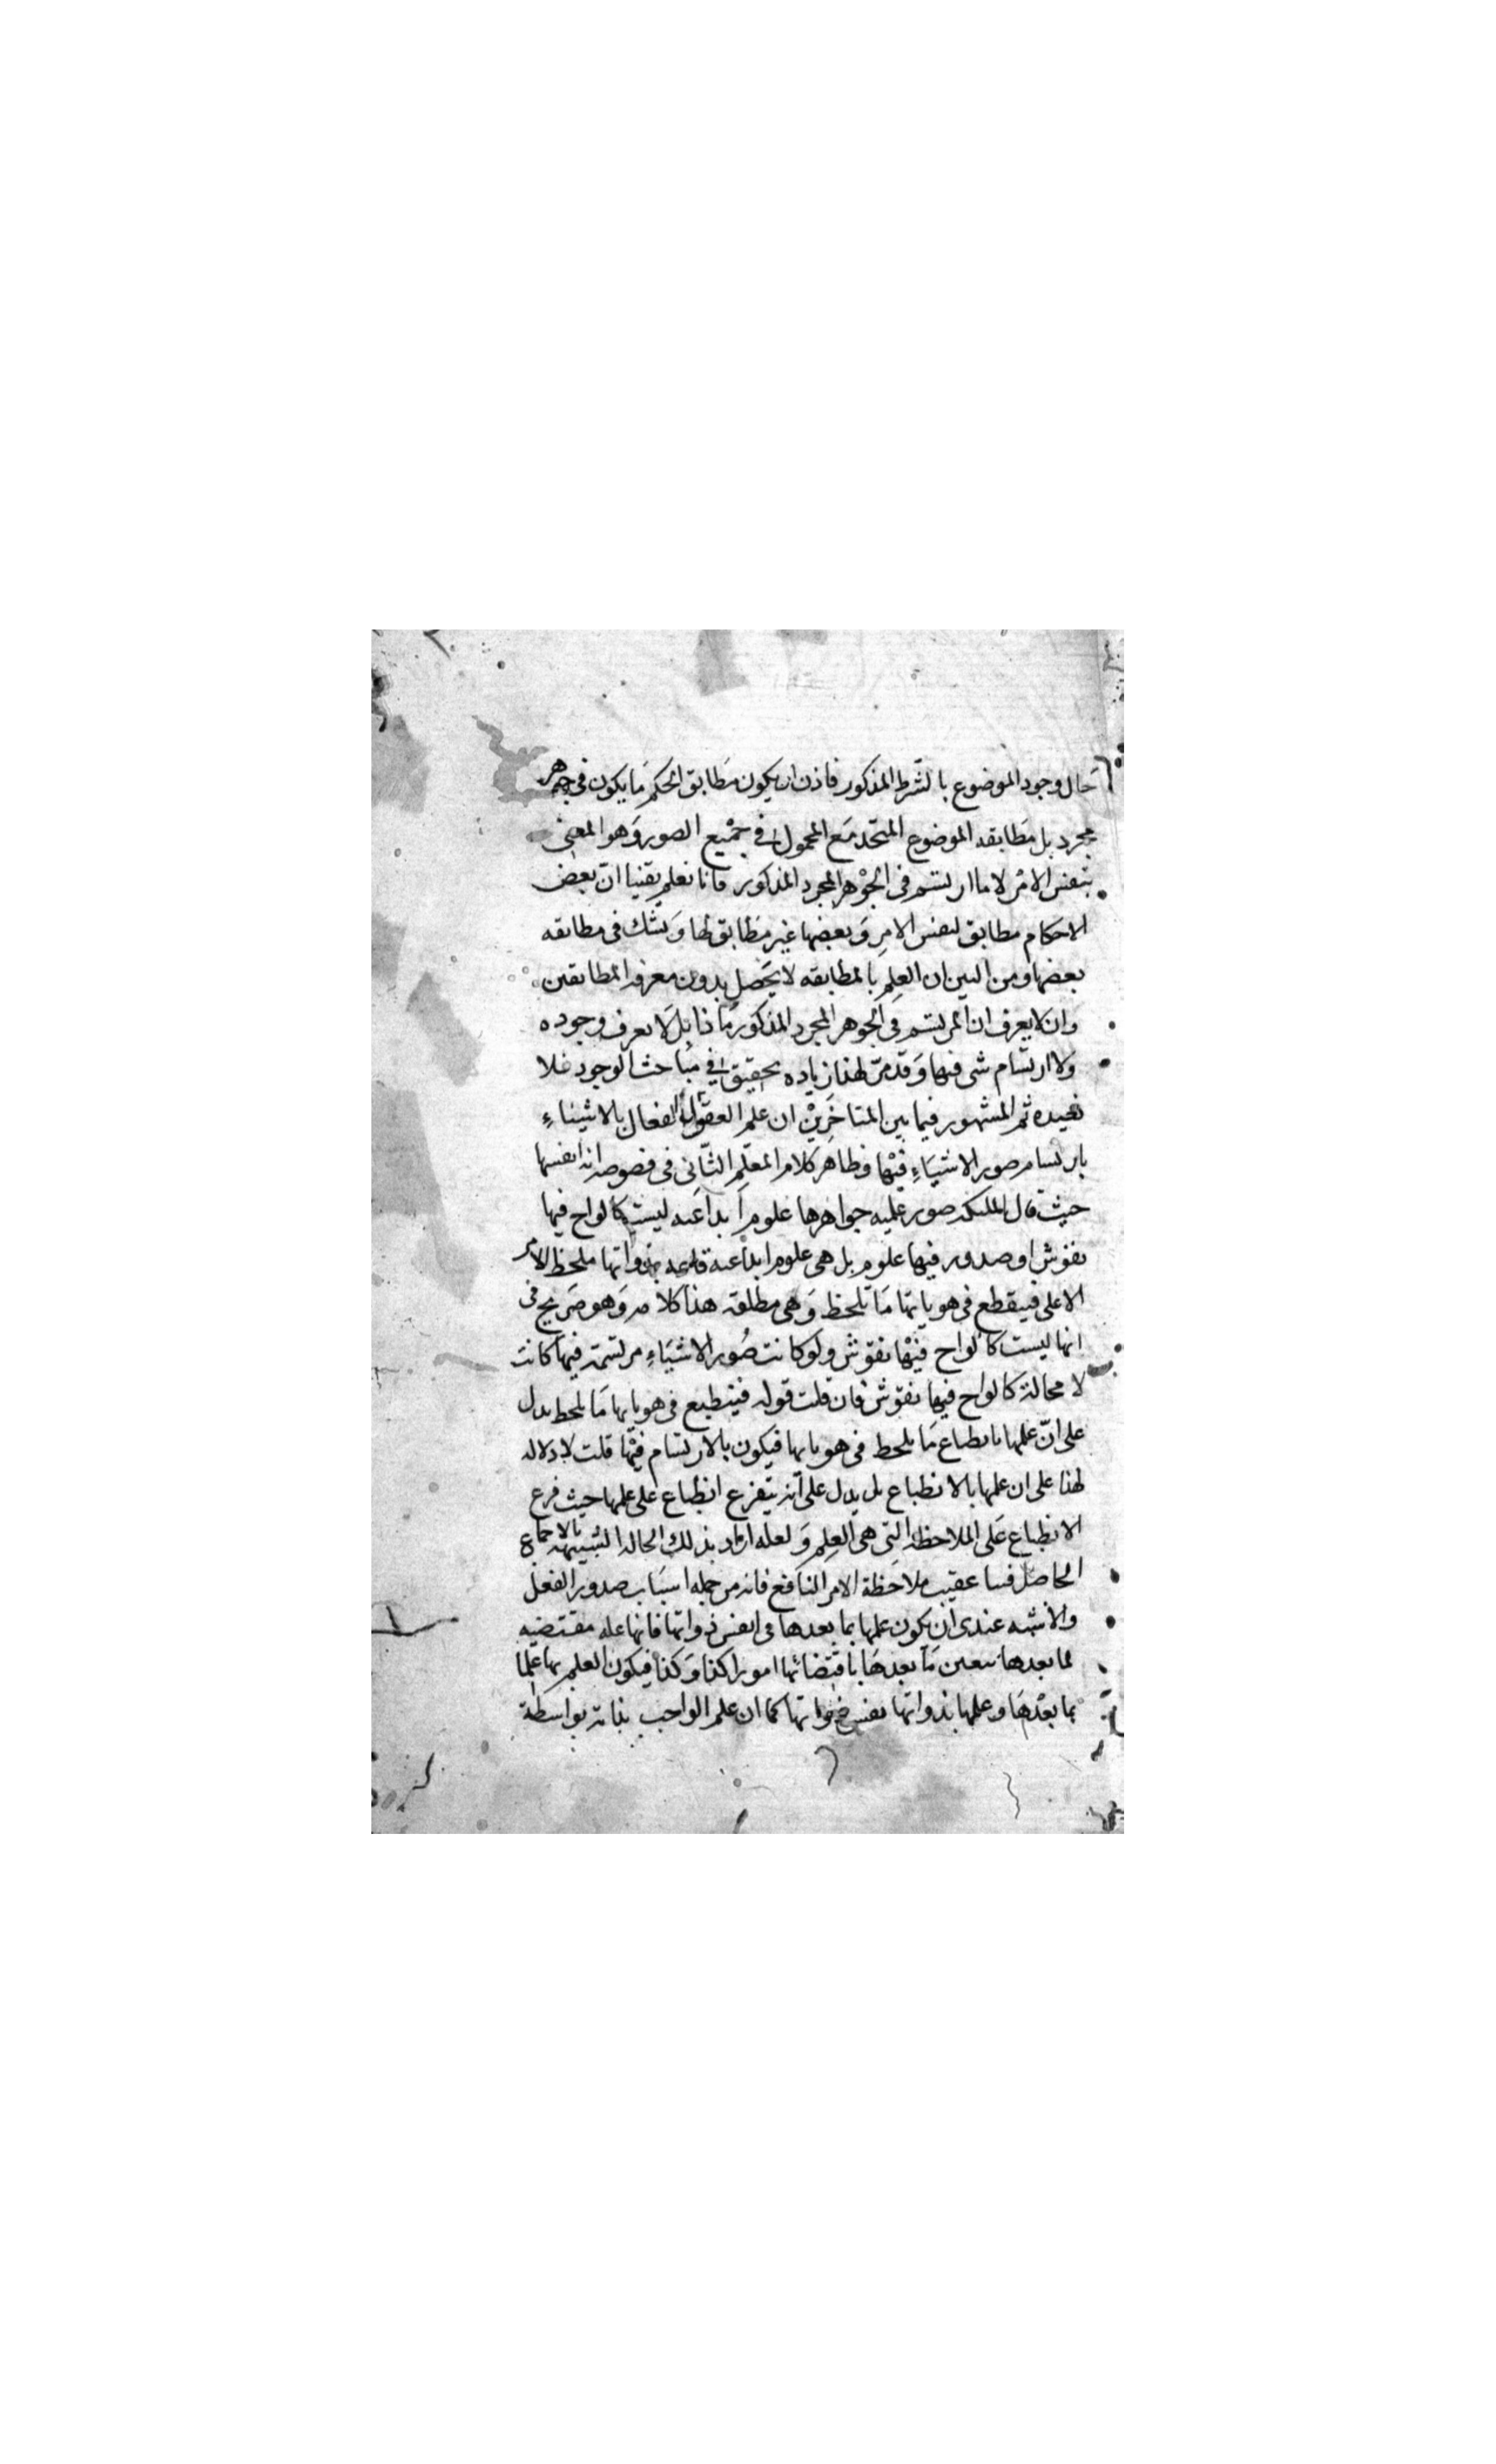 حال وجود الموضوع بالشرط المذكور فاذن ان يكون مطابق الحكم ما يكون فى جوهر
مجرد بل مطابقه الموضوع المتحد مع المحمول فى جميع الصور وهو المعنى
بنفس الامر لا ما ارتسم فى الجوهر المجرد المذكور فانا نعلم يقنيا ان بعض
الاحكام مطابق لنفس الامر وبعضها غير مطابق لها ونشك فى مطابقه
بعضها ومن البين ان العلم بالمطابقه لا يحصل بدون معرفه المطابقين
وان لا يعرف ان المرتسم فى الجوهر المجرد المذكور ماذا بل لا يعرف وجوده
ولا ارتسام شى فيها وقد مر لهذا زياده تحقيق فى مباحث الوجود فلا
نعيده ثم المشهور فيما بين المتاخرين ان علم العقول الفعال بالاشيناء
بارتسام صور الاشياء فيها وظاهر كلام المعلم الثانى فى فصوصه انه انفسها
حيث قال الملكه صور علميه جواهرها علوم ابداعيه ليست كالواح فيها
نقوش او صدور فيها علوم بل هى علوم ابداعيه قايمه بذواتها ملحظ الامر
الاعلى فيقطع فى هوياتها ما تلحظ وهى مطلقه هذا كلامه وهو صريح فى
انها ليست كالواح فيها نقوش ولو كانت صور الاشياء مرتسمة فيها كانت
لا محالة كالواح فيها نقوش فان قلت قوله فينطبع فى هوياتها ما يلحظ يدل
على ان علمها بانطباع ما يلحظ فى هوياتها فيكون بالارتسام فيها قلت لا دلاله
لهذا على ان علمها بالانطباع بل يدل على انه يتفرع انطباع على علمها حيث فرع
الانطباع على الملاحظة التى هى العلم ولعله اراد بذلك الحاله الشبيهه بالاجماع
الحاصل فينا عقيب ملاحظة الامر النافع فانه من جمله اسباب صدور الفعل
والاشبه عندى ان يكون علمها بما بعدها فى انفس ذواتها فانها عله مقتضيه
لما بعدها بتعين ما بعدها باقتضائها امورا كذا وكذا فيكون العلم بها علما
بما بعدها وعلمها بذواتها نفس ذواتها كما ان علم الواجب بذاته بواسطة